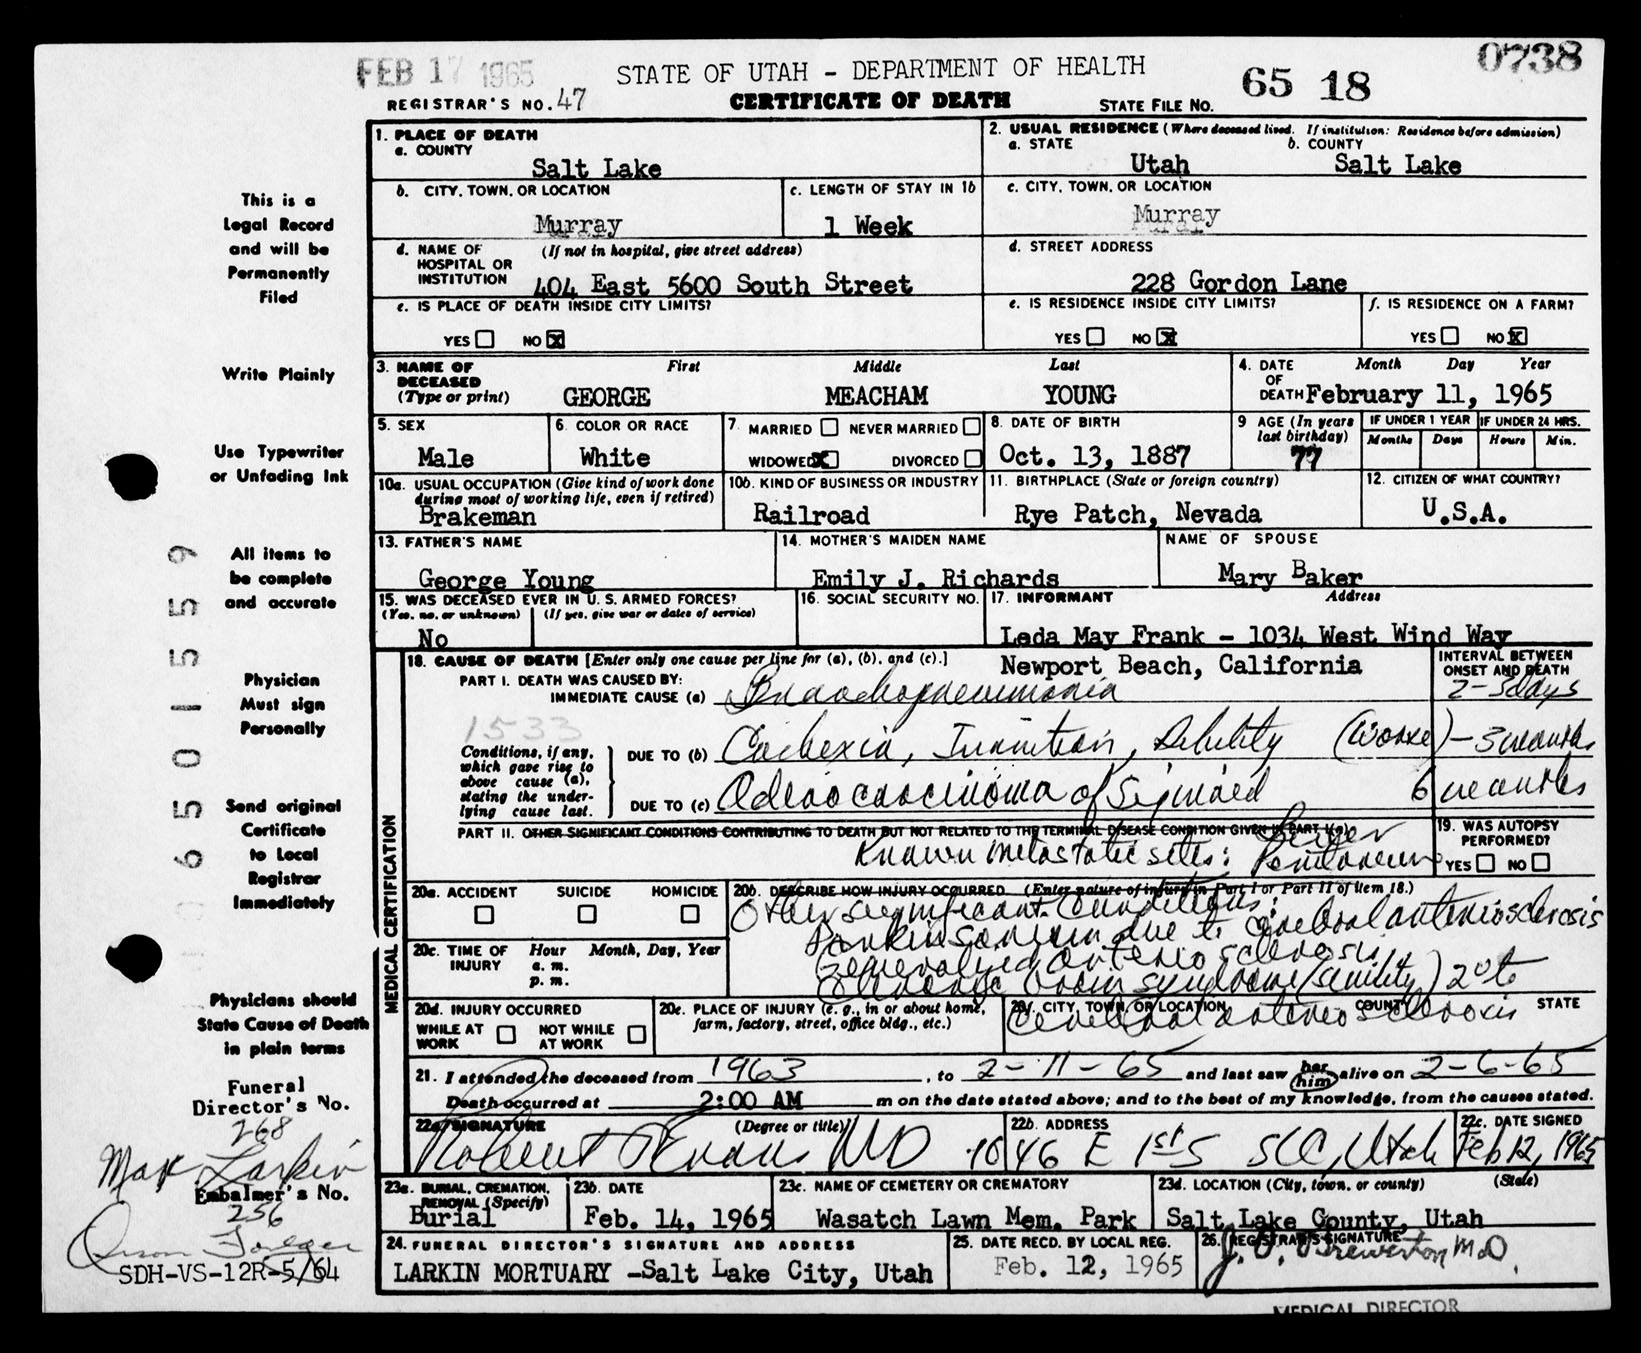 FEB 17 1965
STATE OF UTAH - DEPARTMENT OF HEALTH
65 18
0738
REGISTRAR'S NO. 47
CERTIFICATE OF DEATH
STATE FILE NO.
This is a
Legal Record
and will be
Permanently
Filed
Write Plainly
Use Typewriter
or Unfading Ink
All items to
be complete
and accurate
Physician
Must sign
Personally
Send original
Certificate
to Local
Registrar
Immediately
Physicians should
State Cause of Death
in plain terms
Funeral
Director's No.
268
Max Larkin
Embalmer's No.
256
SDH-VS-12R-5/64
1. PLACE OF DEATH
a. COUNTY
Salt Lake
2. USUAL RESIDENCE (Where deceased lived. If institution: Residence before admission)
a. STATE
Utah
b. COUNTY
Salt Lake
b. CITY, TOWN, OR LOCATION
Murray
c. LENGTH OF STAY IN 1b
1 Week
c. CITY, TOWN, OR LOCATION
Murray
d. NAME OF HOSPITAL OR INSTITUTION
(If not in hospital, give street address)
404 East 5600 South Street
d. STREET ADDRESS
228 Gordon Lane
e. IS PLACE OF DEATH INSIDE CITY LIMITS?
YES NO X
e. IS RESIDENCE INSIDE CITY LIMITS?
YES NO X
f. IS RESIDENCE ON A FARM?
YES NO X
3. NAME OF DECEASED (Type or print)
First Middle Last
GEORGE MEACHAM YOUNG
4. DATE OF DEATH
Month Day Year
February 11, 1965
5. SEX
Male
6. COLOR OR RACE
White
7. MARRIED NEVER MARRIED
WIDOWED X DIVORCED
8. DATE OF BIRTH
Oct. 13, 1887
9 AGE (In years last birthday)
77
IF UNDER 1 YEAR
Months Days
IF UNDER 24 HRS.
Hours Min.
10a. USUAL OCCUPATION (Give kind of work done during most of working life, even if retired)
Brakeman
10b. KIND OF BUSINESS OR INDUSTRY
Railroad
11. BIRTHPLACE (State or foreign country)
Rye Patch, Nevada
12. CITIZEN OF WHAT COUNTRY?
U.S.A.
13. FATHER'S NAME
George Young
14. MOTHER'S MAIDEN NAME
Emily J. Richards
NAME OF SPOUSE
Mary Baker
15. WAS DECEASED EVER IN U. S. ARMED FORCES?
(Yes, no, or unknown) (If yes, give war or dates of service)
No
16. SOCIAL SECURITY NO.
17. INFORMANT Address
Leda May Frank - 1034 West Wind Way
Newport Beach, California
MEDICAL CERTIFICATION
18. CAUSE OF DEATH [Enter only one cause per line for (a), (b), and (c).]
INTERVAL BETWEEN ONSET AND DEATH
PART I. DEATH WAS CAUSED BY:
IMMEDIATE CAUSE (a) Bronchopneumonia 2-3 days
1533
Conditions, if any, which gave rise to above cause (a), stating the underlying cause last.
DUE TO (b) Cachexia, Inanition, Debility (Worse) - 3 months
DUE TO (c) Adenocarcinoma of Sigmoid 6 months
PART II. OTHER SIGNIFICANT CONDITIONS CONTRIBUTING TO DEATH BUT NOT RELATED TO THE TERMINAL DISEASE CONDITION GIVEN IN PART I(a)
Known metastatic sites: Liver Peritoneum
19. WAS AUTOPSY PERFORMED?
YES NO
20a. ACCIDENT SUICIDE HOMICIDE
20b. DESCRIBE HOW INJURY OCCURRED. (Enter nature of injury in Part I or Part II of item 18.)
Other significant Conditions:
Parkinsonism due to Cerebral arteriosclerosis
Generalized arteriosclerosis
Chronic brain syndrome (senility) 2° to
Cerebral arteriosclerosis
20c. TIME OF INJURY Hour Month, Day, Year
a. m.
p. m.
20d. INJURY OCCURRED
WHILE AT WORK NOT WHILE AT WORK
20e. PLACE OF INJURY (e. g., in or about home, farm, factory, street, office bldg., etc.)
20f. CITY, TOWN, OR LOCATION COUNTY STATE
21. I attended the deceased from 1963, to 2-11-65 and last saw her him alive on 2-6-65
Death occurred at 2:00 AM m on the date stated above; and to the best of my knowledge, from the causes stated.
22a. SIGNATURE (Degree or title)
Robert Evans MD
22b. ADDRESS
1046 E 1st S SLC, Utah
22c. DATE SIGNED
Feb 12, 1965
23a. BURIAL, CREMATION, REMOVAL (Specify)
Burial
23b. DATE
Feb. 14, 1965
23c. NAME OF CEMETERY OR CREMATORY
Wasatch Lawn Mem. Park
23d. LOCATION (City, town, or county) (State)
Salt Lake County, Utah
24. FUNERAL DIRECTOR'S SIGNATURE AND ADDRESS
LARKIN MORTUARY -Salt Lake City, Utah
25. DATE RECD. BY LOCAL REG.
Feb. 12, 1965
26. REGISTRAR'S SIGNATURE
J. O. Brewerton M.D.
MEDICAL DIRECTOR